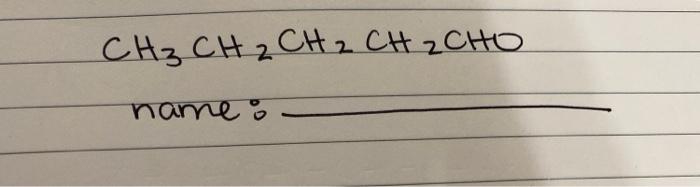 CH3 CH2 CH2 CH2 CHO
name: